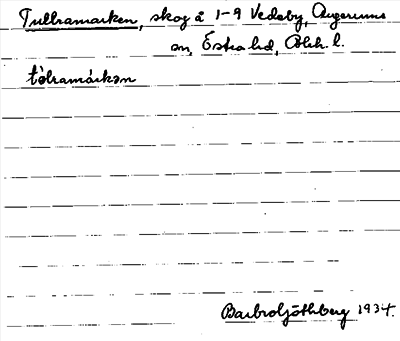 Tullramarken, skog å 1-9 Vedeby, Augerums
sn, Östra hd, Blek. l.
tålramárkən
Barbro Ljóthberg 1934.